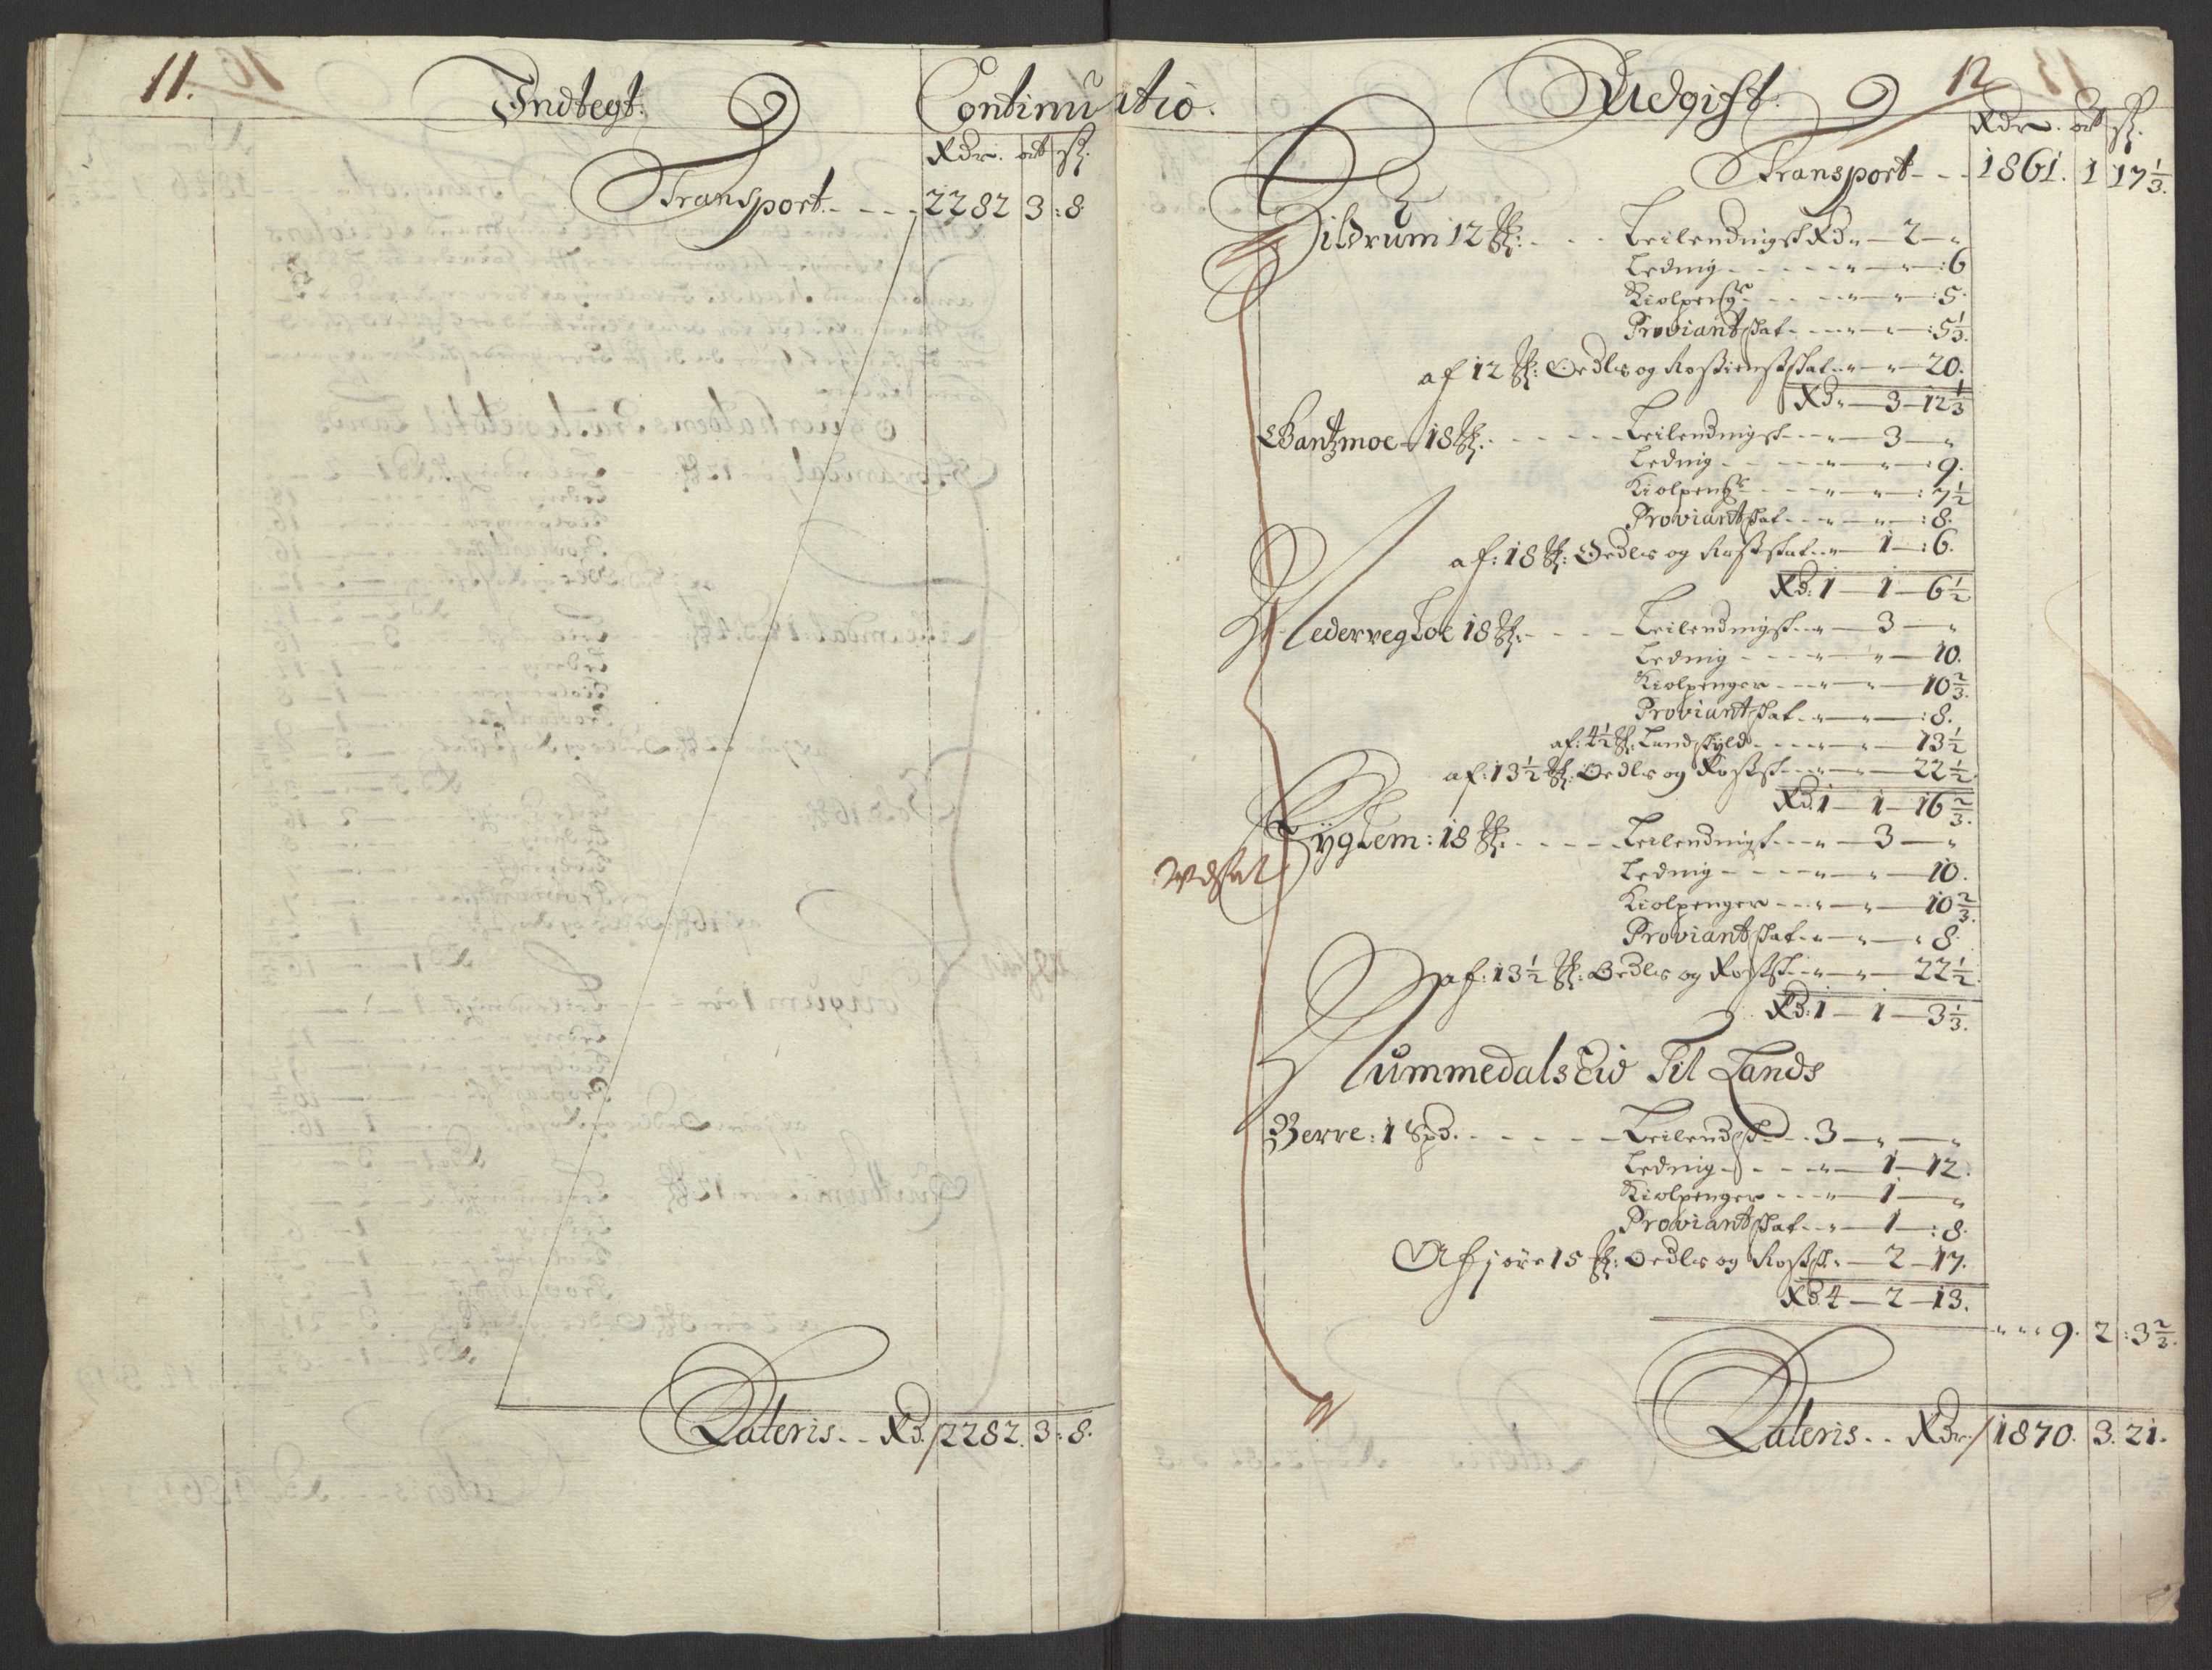 11.
Indtegt.
Continuatio.
Rdr. ort sk.
Transport. - - - 2282 3 : 8
Lateris - - Rd. 2282. 3 : 8.
Udgift.
12
Rdr. ort sk.
Transport - - - 1861. 1 17 1/3.
Dildrum 12 sk: - - - Leilendingsk Rd " — 2 — "
Ledning - - - - - " — " — : 6
Kiolpenge - - - - " — " — : 5.
Proviantskat - - - " — " — : 5 1/3.
af 12 sk: Oedls og Rostienistskat - - " — " — 20.
Rd " — 3 — 12 1/3
Bantzmoe - 18 sk. - - - - - Leilendingsk - - - " — 3 — "
Ledning - - - - - " — " — : 9.
Kiolpenge - - - - " — " — : 7 1/2
Proviantskat - - - " — " — : 8.
af: 18 sk: Oedls og Rostskat - - " — 1 — : 6.
Rd: 1 — 1 — 6 1/2
Nedervegtoe 18 sk: - - - - Leilendingsk - - " — 3 — "
Ledning - - - - " — " — 10.
Kiolpenger - - - " — " — 10 2/3.
Proviantskat - - " — " — : 8.
af: 4 1/2 sk: Landskyld - - - - " — " — 13 1/2
af: 13 1/2 sk: Oedls og Rostsk - - - " — " — 22 1/2.
Rd. 1 — 1 — 16 2/3.
Fyglem: 18 sk. - - - - Leilendingsk - - - " — 3 — "
Ledning - - - - - " — " — 10.
Kiolpenger - - - " — " — 10 2/3.
Proviantskat - - " — " — " 8
af: 13 1/2 sk: Oedls og Rostsk - - " — " — 22 1/2.
Rd: 1 — 1 — 3 1/3.
Nummedals Eid Til Lands
Berre: 1 Spd. - - - - - Leilendsk - - 3 — " — "
Ledning - - - - " — 1 — 12.
Kiolpenger - - - " — 1 — "
Proviantskat - - " — 1 — : 8.
Af j øre 15 sk: Oedls og Rostsk " — 2 — 17.
Rd. 4 — 2 — 13.
" " " 9. 2 : 3 2/3.
Lateris - - Rdr. 1870. 3. 21.